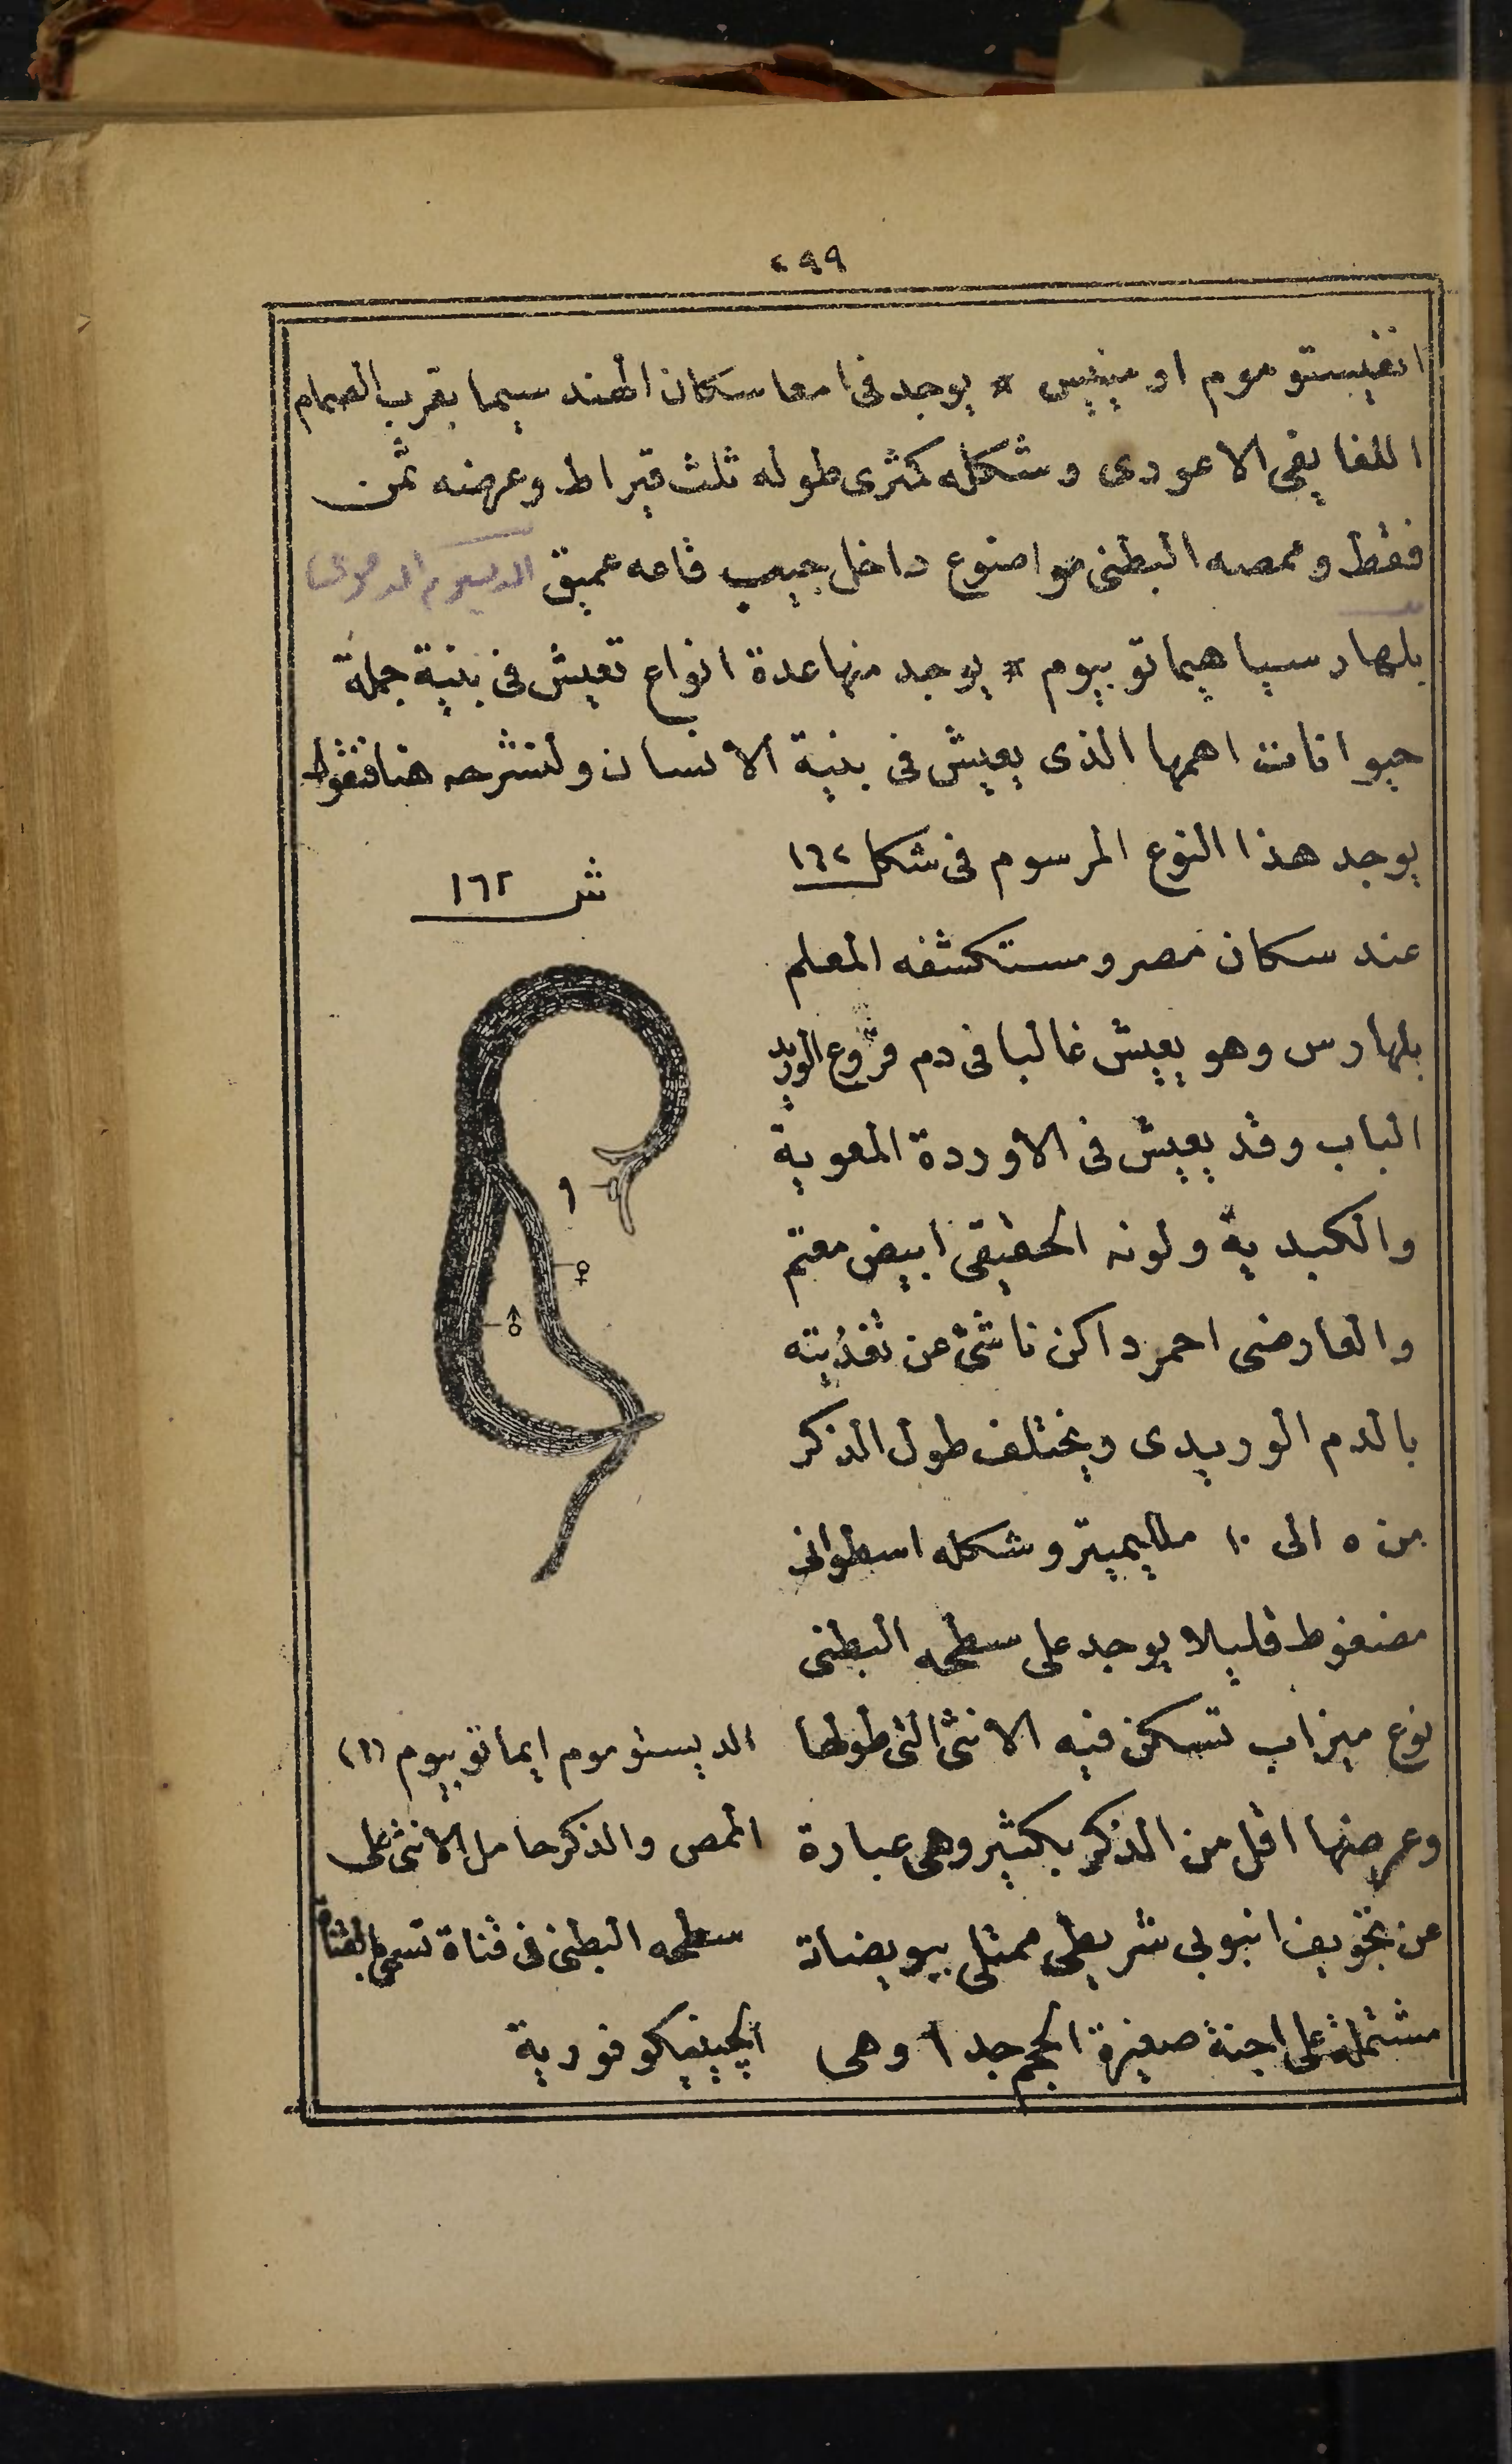 ٤٩٩
انفيستوموم اومينيس * يوجد فى امعا سكان الهند سيما بقرب الصمام
اللفايفى الاعورى وشكله كمثرى طوله ثلث قيراط وعرضه ثمن
فقط وممصه البطنى موضوع داخل جيب قاعه عميق
بلهارسيا هيماتوبيوم * يوجد منها عدة انواع تعيش فى بنية جملة
حيوانات اهمها الذى يعيش فى بنية الانسان ولنشرحه هنا فنقول
يوجد هذا النوع المرسوم فى شكل ١٦٢
عند سكان مصر ومستكشفه المعلم
بلهارس وهو يعيش غالبا فى دم فروع الوريد
الباب وقد يعيش فى الاوردة المعوية
والكبدية ولونه الحقيقى ابيض معتم
والعارضى احمر داكن ناشئ عن تغذيته
بالدم الوريدى ويختلف طول الذكر
من ٥ الى ١٠ ملليميتر وشكله اسطوانى
مضغوط قليلا يوجد على سطحه البطنى
نوع ميزاب تسكن فيه الانثى التى طولها
وعرضها اقل من الذكر بكثير وهى عبارة
عن تجويف انبوبى شريطى ممتلى ببويضات
مشتملة على اجنة صغيرة الحجم جدا وهى
ش ١٦٢
١
♀
♂
الديستوموم ايماتوبيوم (١)
الممص والذكر حامل الانثى على
سطحه البطنى فى قناة تسمى بالقناة
الجينيكوفورية